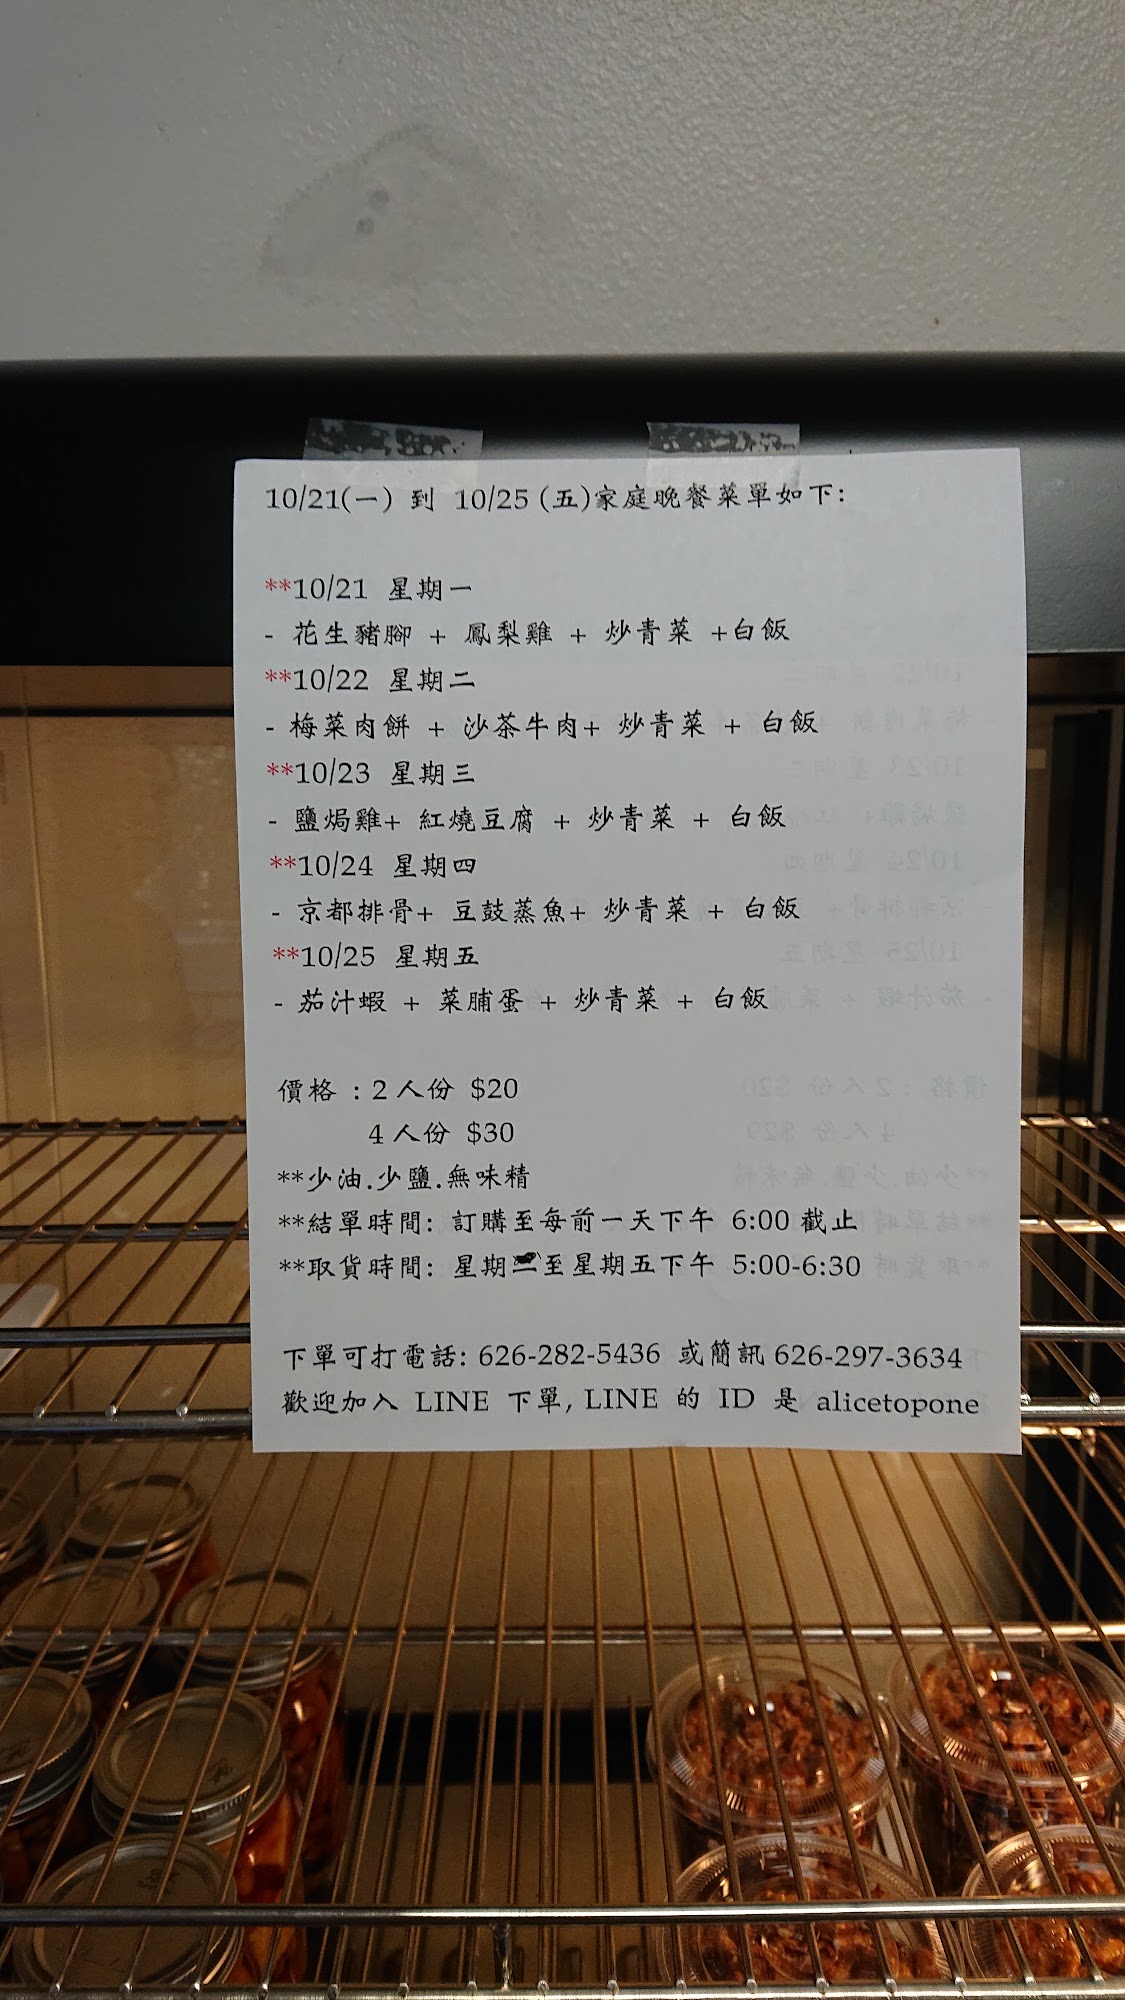 10/21(一) 到 10/25 (五)家庭晚餐菜單如下:
**10/21 星期一
- 花生豬腳 + 鳳梨雞 + 炒青菜 +白飯
**10/22 星期二
- 梅菜肉餅 + 沙茶牛肉+ 炒青菜 + 白飯
**10/23 星期三
- 鹽焗雞+ 紅燒豆腐 + 炒青菜 + 白飯
**10/24 星期四
- 京都排骨+ 豆鼓蒸魚+ 炒青菜 + 白飯
**10/25 星期五
- 茄汁蝦 + 菜脯蛋 + 炒青菜 + 白飯
價格 : 2 人份 $20
4 人份 $30
**少油.少鹽.無味精
**結單時間: 訂購至每前一天下午 6:00 截止
**取貨時間: 星期至星期五下午 5:00-6:30
下單可打電話: 626-282-5436 或簡訊 626-297-3634
歡迎加入 LINE 下單, LINE 的 ID 是 alicetopone